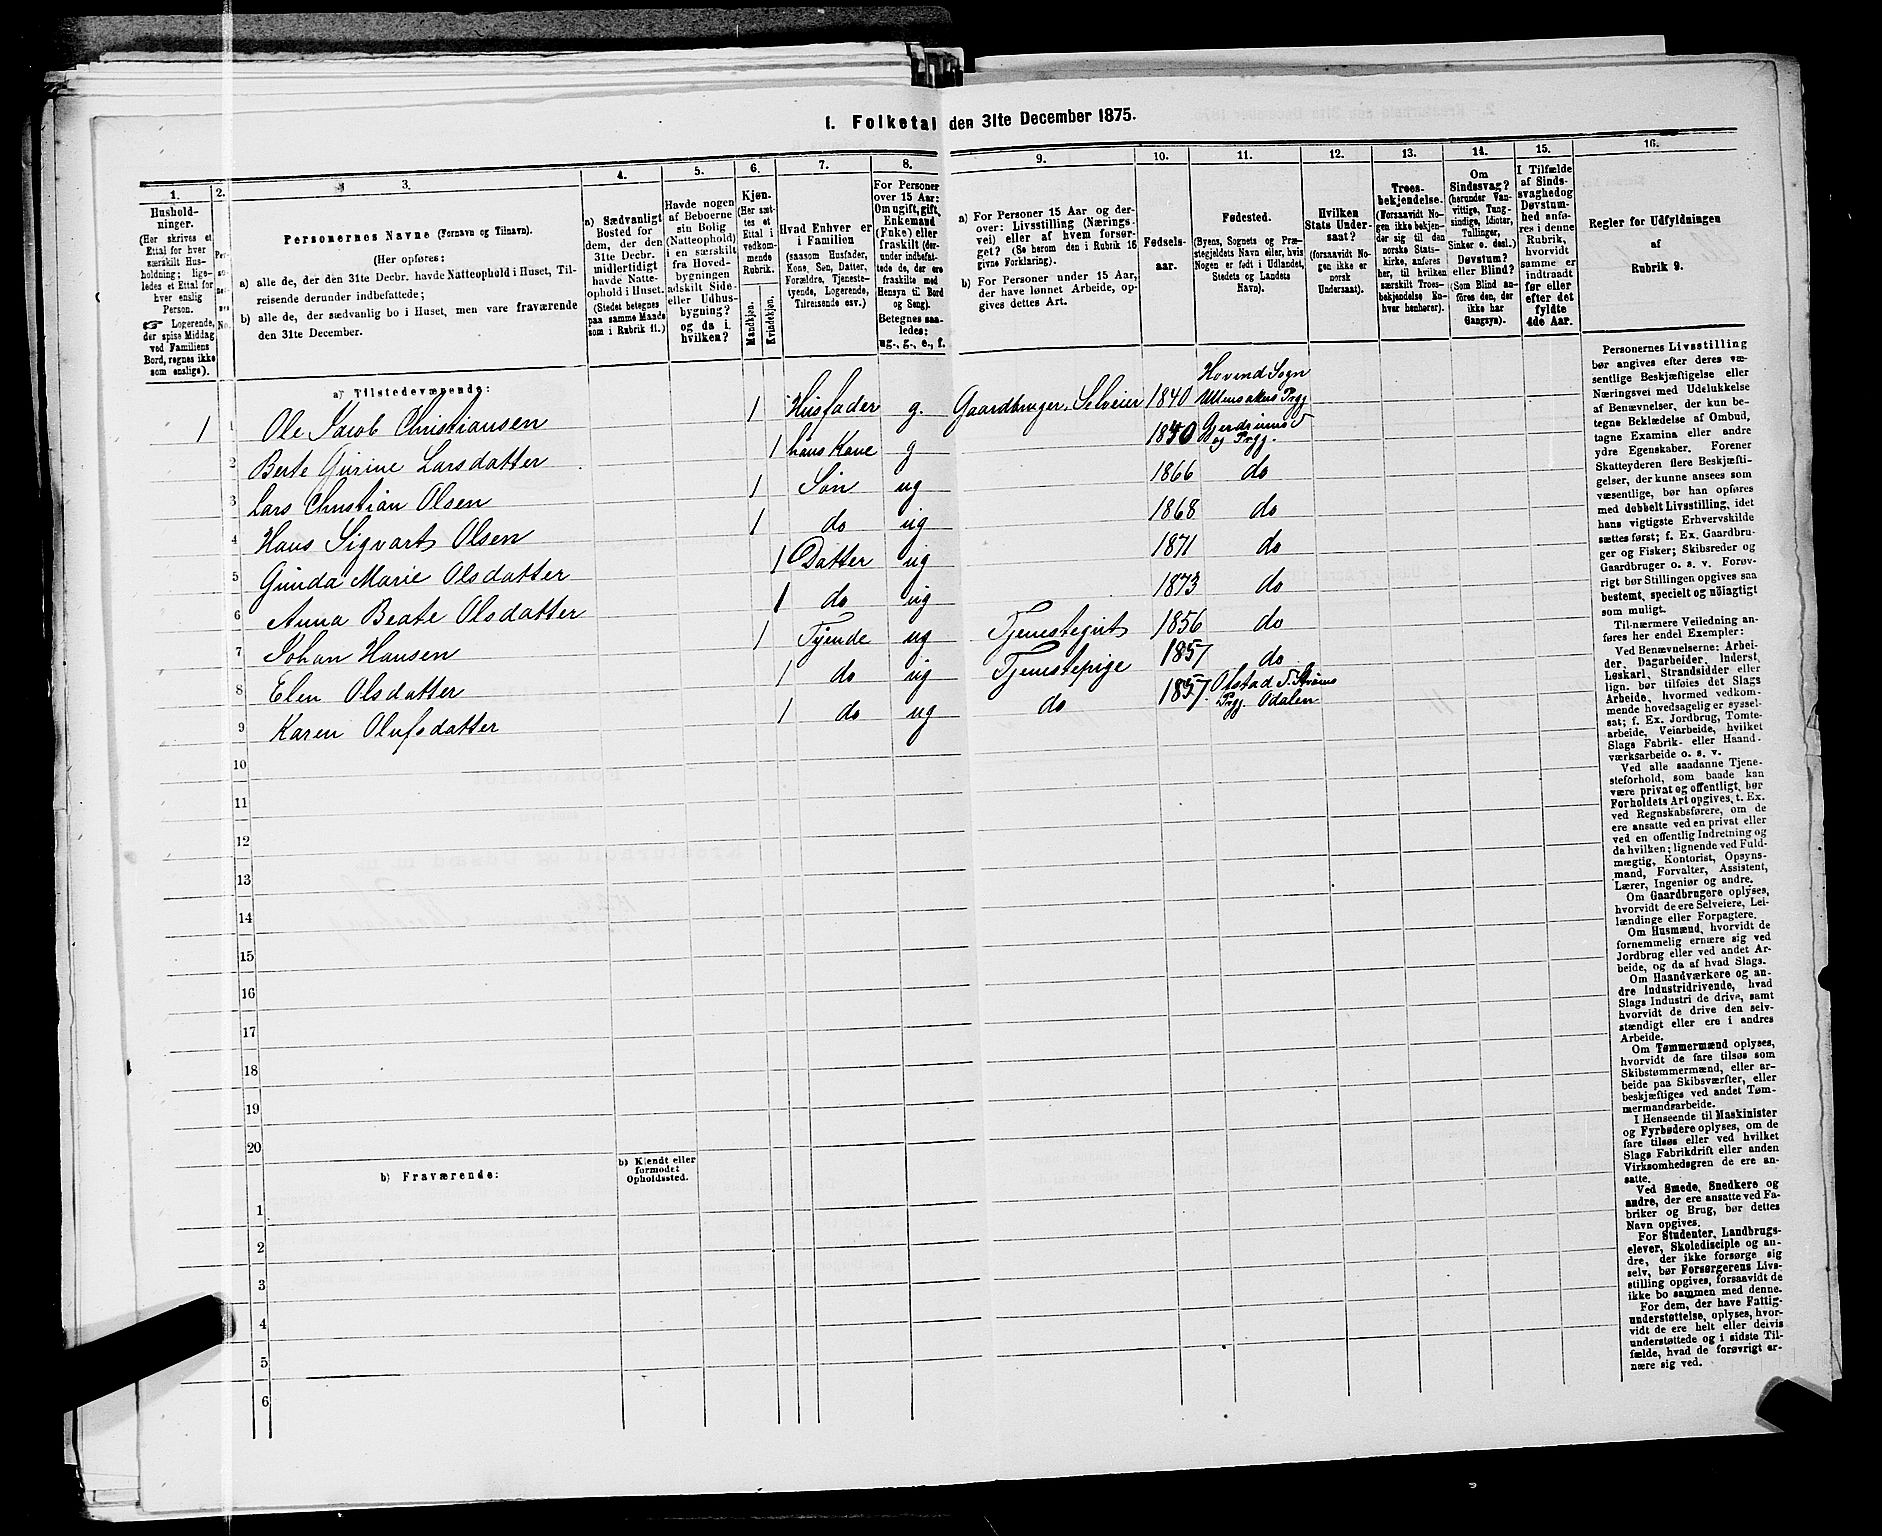 1. Folketal den 31te December 1875.
1. 2. 3. 4. 5. 6. 7. 8. 9. 10. 11. 12. 13. 14. 15. 16.
Hushold-
ninger.
(Her skrives et
Ettal for hver
særskilt Hus-
holdning; lige-
ledes et Ettal for
hver enslig
Person.
☞ Logerende,
der spise Middag
ved Familiens
Bord, regnes ikke
som enslige).
Per-
so-
ner-
nes
No.
Personernes Navne (Fornavn og Tilnavn).
(Her opføres:
a) alle de, der den 31te Decbr. havde Natteophold i Huset, Til-
reisende derunder indbefattede;
b) alle de, der sædvanlig bo i Huset, men vare fraværende
den 31te December.
a) Sædvanligt
Bosted for
dem, der den
31te Decbr.
midlertidigt
havde Natte-
ophold i Huset.
(Stedet betegnes
paa samme Maade
som i Rubrik 11.)
Havde nogen
af Beboerne
sin Bolig
(Natteophold)
i en særskilt
fra Hoved-
bygningen
adskilt Side-
eller Udhus-
bygning?
og da i
hvilken?
Kjøn.
(Her sæt-
tes et
Ettal i
vedkom-
mende
Rubrik.
Mandkjøn.
Kvindekjøn.
Hvad Enhver er
i Familien
(saasom Husfader,
Kone, Søn, Datter,
Forældre, Tjeneste-
tyende, Logerende,
Tilreisende osv.)
For Personer
over 15 Aar:
Om ugift, gift,
Enkemand
(Enke) eller
fraskilt (der-
under indbefat-
tede de, der ere
fraskilte med
Hensyn til Bord
og Seng).
Betegnes saa-
ledes:
ug., g., e., f.
a) For Personer 15 Aar og der-
over: Livsstilling (Nærings-
vei) eller af hvem forsør-
get? (Se herom den i Rubrik 16
givne Forklaring).
b) For Personer under 15 Aar,
der have lønnet Arbeide, op-
gives dettes Art.
Fødsels-
aar.
Fødested.
(Byens, Sognets og Præ-
stegjeldets Navn eller, hvis
Nogen er født i Udlandet,
Stedets og Landets
Navn).
Hvilken
Stats Under-
saat?
(forsaavidt No-
gen ikke er
norsk
Undersaat).
Troes-
bekjendelse.
(Forsaavidt No-
gen ikke bekjen-
der sig til den
norske Stats-
kirke, anføres
her, til hvilken
særskilt Troes-
bekjendelse En-
hver henhører).
Om
Sindssvag?
(herunder Van-
vittige, Tung-
sindige, Idioter,
Tullinger,
Sinker o. desl.)
Døvstum?
eller Blind?
(Som Blind an-
føres den, der
ikke har
Gangsyn).
I Tilfælde
af Sinds-
svaghed og
Døvstum-
hed anfø-
res i denne
Rubrik,
hvorvidt
samme er
indtraadt
før eller
efter det
fyldte
4de Aar.
Regler for Udfyldningen
af
Rubrik 9.
a) Tilstedeværende:
1 1 Ole Jacob Christiansen 1 Husfader g. Gaardbruger, Selveier 1840 Hovind Sogn
Ullensakers Prgj
2 Berte Gurine Larsdatter 1 hans Kone g 1840 Gjerdrums S
og Prgj.
3 Lars Christian Olsen 1 Søn ug 1866 do
4 Hans Sigvart Olsen 1 do ug 1868 do
5 Gunda Marie Olsdatter 1 Datter ug 1871 do
6 Anna Beate Olsdatter 1 do ug 1873 do
7 Johan Hansen 1 Tyende ug Tjenestegut 1856 do
8 Elen Olsdatter 1 do ug Tjenestepige 1857 do
9 Karen Olufsdatter 1 do ug do 1857 Strøms
Prgj. Odalen
10
11
12
13
14
15
16
17
18
19
20
b) Fraværende:
b) Kjendt eller
formodet
Opholdssted.
1
2
3
4
5
6
Personernes Livsstilling
bør angives efter deres væ-
sentlige Beskjæftigelse eller
Næringsvei med Udelukkelse
af Benævnelser, der kun be-
tegne Beklædelse af Ombud,
tagne Examina eller andre
ydre Egenskaber. Forener
Skatteyderen flere Beskjæfti-
gelser, der kunne ansees som
væsentlige, bør han opføres
med dobbelt Livsstilling, idet
hans vigtigste Erhvervskilde
sættes først; f. Ex. Gaardbru-
ger og Fisker; Skibsreder og
Gaardbruger o. s. v. Forøv-
rigt bør Stillingen opgives saa
bestemt, specielt og nøiagtigt
som muligt.
Til nærmere Veiledning an-
føres her endel Exempler:
Ved Benævnelserne: Arbei-
der, Dagarbeider, Inderst,
Løskarl, Strandsidder eller
lign. bør tilføies det Slags
Arbeide, hvormed vedkom-
mende hovedsagelig er syssel-
sat; f. Ex. Jordbrug, Tomte-
arbeide, Veiarbeide, hvilket
Slags Fabrik- eller Haand-
værksarbeide o. s. v.
Ved alle saadanne Tjene-
steforhold, som baade kan
være privat og offentligt, bør
Forholdets Art opgives, t. Ex.
ved Regnskabsførere, om de
ere ansatte ved en privat eller
ved en offentlig Indretning og
da hvilken; lignende ved Fuld-
mægtig, Kontorist, Opsyns-
mand, Forvalter, Assistent,
Lærer, Ingeniør og andre.
Om Gaardbrugere oplyses,
hvorvidt de ere Selveiere, Lei-
lændinge eller Forpagtere.
Om Husmænd, hvorvidt de
fornemmelig ernære sig ved
Jordbrug eller ved andet Ar-
beide, og da af hvad Slags.
Om Haandværkere og an-
dre Industridrivende, hvad
Slags Industri de drive, samt
hvorvidt de drive den selv-
stændigt eller ere i andres
Arbeide.
Om Tømmermænd oplyses,
hvorvidt de fare tilsøs som
Skibstømmermænd, eller ar-
beide paa Skibsværfter, eller
beskjæftiges ved andet Tøm-
mermandsarbeide.
I Henseende til Maskinister
og Fyrbødere oplyses, om de
fare tilsøs eller ved hvilket
Slags Fabrikdrift eller anden
Virksomhedsgren de ere an-
satte.
Ved Smede, Snedkere og
andre, der ere ansatte ved Fa-
briker og Brug, bør dettes
Navn opgives.
For Studenter, Landbrugs-
elever, Skoledisciple og an-
dre, der ikke forsørge sig
selv, bør Forsørgerens Livs-
stilling opgives, forsaavidt de
ikke bo sammen med denne.
For dem, der have Fattig-
understøttelse, oplyses, hvor-
vidt de ere helt eller delvis
understøttede og i sidste Til-
fælde, hvad de forøvrigt er-
nære sig ved.